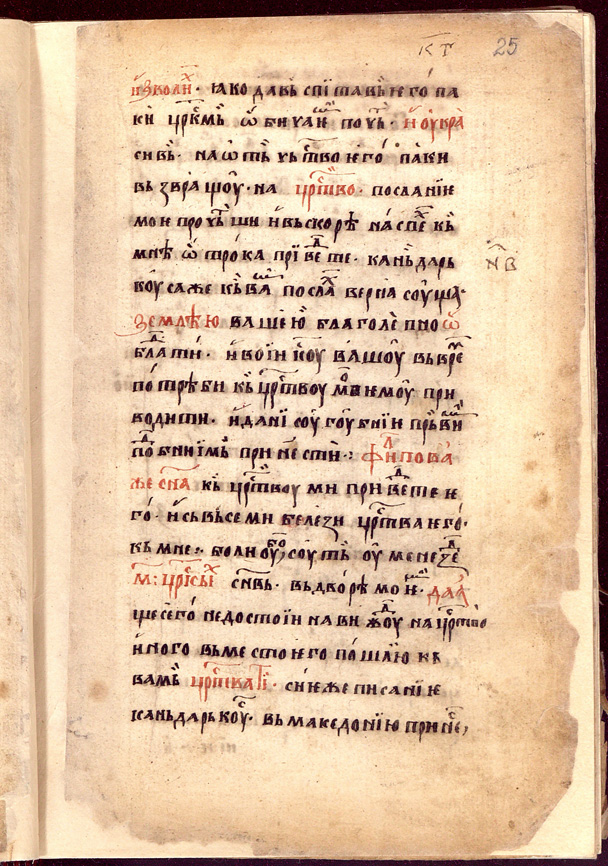 к҃г 25
изволи҇х · ꙗко давь спїтавь ѥго па
кы цр҃кмь ѡбычаи почь · и оукра
сивь · на ѡтьчьтво ѥго паки
вьзвращоу · на цр҃тво · посланїе
моѥ прочьши и вьскорѣ наспѣ кь
мнѣ ѿтрока прїведете · каньдарь
коусаже кь ва посла верна соуща ·
землѥю вашею благолѣпно ѡ
блати · и воиньскоу вашоу вь врѣ
потрѣби кь цр҃твоу моѥмоу при
водити · и дани соугоубнїи прьви
побнїимь принести :· филипова
же сн҃а кь цр҃твоу ми приведете ѥ
го · и сь вьсеми белези цр҃тва ѥго ·
кь мне :· боли оубо, соуть оу мене зе
м҃ : цр҃сы сн҃вь · вь дворѣ моѥ · даа
ще сего недостоина виждоу на цр҃тво
иного вьместо ѥго пошлю кь
вамь цр҃твати · сиѥже писанїе
каньдаркоусь · вь македонїю принес,